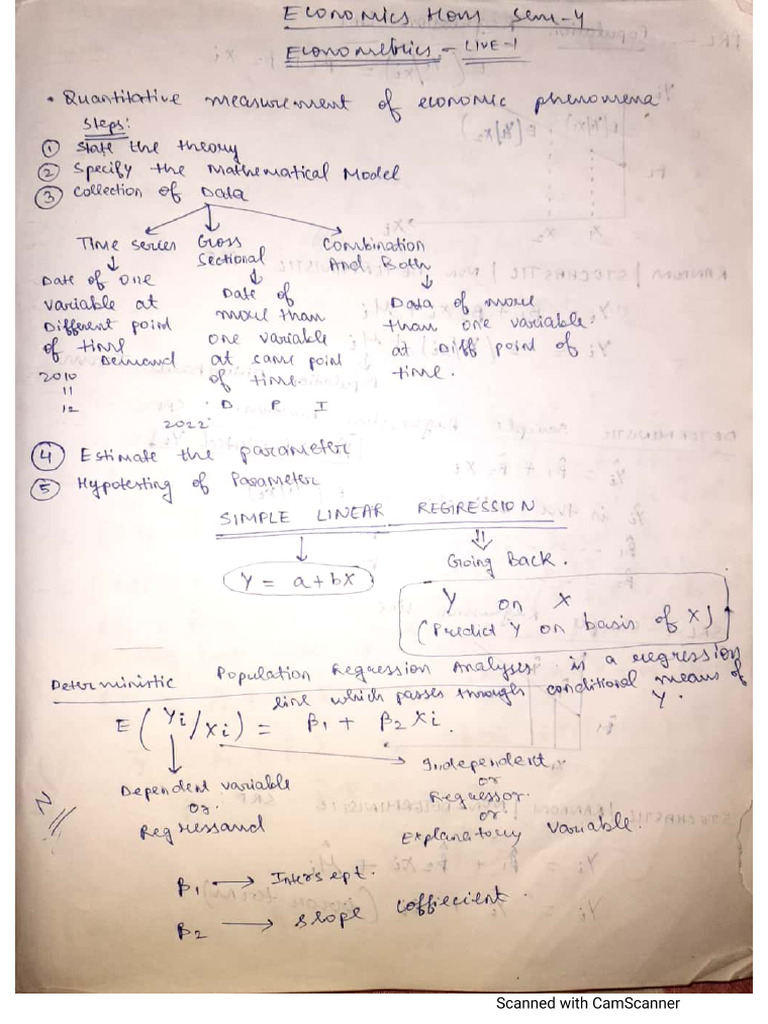 Economics Hons Sem-4
Econometrics - LIVE-1
• Quantitative measurement of economic phenomena
Steps:
① State the theory
② Specify the Mathematical Model
③ Collection of Data
Time series Cross Sectional Combination And Both
Date of one variable at Different point of time
Demand
2010
11
12
Date of more than one variable at same point of time.
D P I
2022
Data of more than one variable at Diff point of time.
④ Estimate the parameter
⑤ Hypotesting of Parameter
SIMPLE LINEAR REGRESSION
Y = a+bX
Going Back.
Y on X
(Predict Y on basis of X)
Deterministic Population Regression Analyses is a regression
line which passes through conditional means of
Y.
E(Yi/Xi) = β1 + β2Xi.
Dependent variable
or
Regressand
Independent
or
Regressor
or
Explanatory variable.
β1 → Intersept.
β2 → slope coffiecient.
Scanned with CamScanner